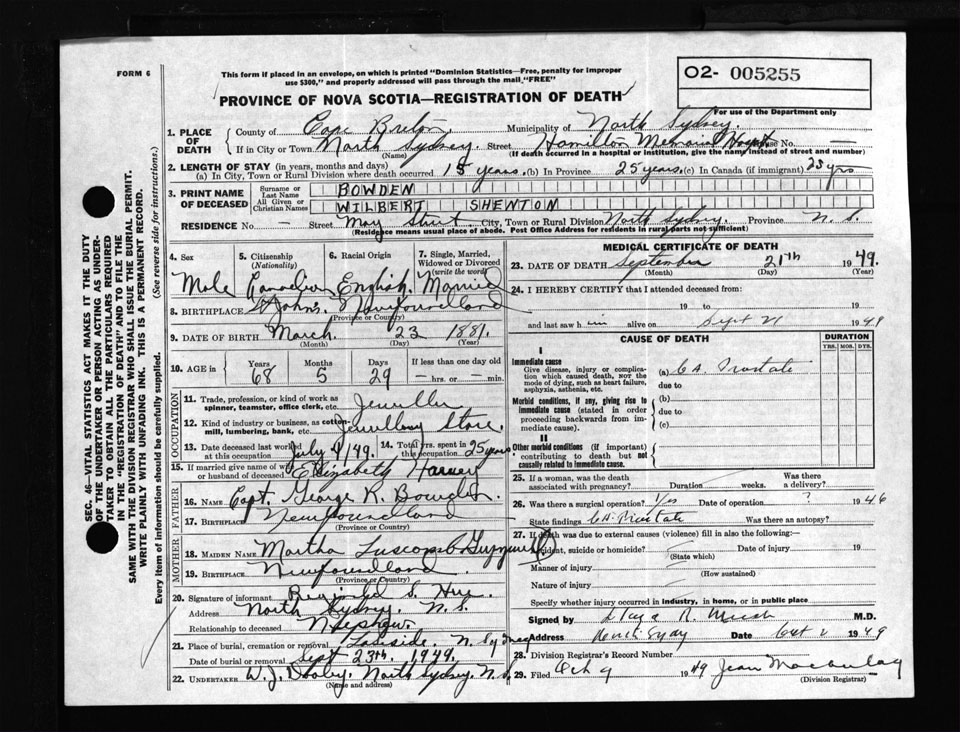 FORM 6
This form if placed in an envelope, on which is printed "Dominion Statistics—Free, penalty for improper
use $300," and properly addressed will pass through the mail "FREE"
O2- 005255
PROVINCE OF NOVA SCOTIA—REGISTRATION OF DEATH
For use of the Department only
1. PLACE OF DEATH
County of Cape Breton Municipality of North Sydney.
If in City or Town North Sydney. Street Hamilton Memorial House No. —
(Name) (If death occurred in a hospital or institution, give the name instead of street and number)
2. LENGTH OF STAY (in years, months and days)
(a) In City, Town or Rural Division where death occurred 15 years. (b) In Province 25 years. (c) In Canada (if immigrant) 25 yrs
3. PRINT NAME OF DECEASED
Surname or Last Name BOWDEN
All Given or Christian Names WILBERT SHENTON
RESIDENCE No. — Street May Street City, Town or Rural Division North Sydney. Province N. S.
(Residence means usual place of abode. Post Office Address for residents in rural parts not sufficient)
4. Sex
5. Citizenship (Nationality)
6. Racial Origin
7. Single, Married, Widowed or Divorced (write the word)
Male Canadian English. Married
8. BIRTHPLACE St John's. Newfoundland
(Province or Country)
9. DATE OF BIRTH March 23 1881.
(Month) (Day) (Year)
10. AGE in
Years Months Days If less than one day
68 5 29 — hrs. or — min.
OCCUPATION
11. Trade, profession, or kind of work as spinner, teamster, office clerk, etc. Jeweller
12. Kind of industry or business, as cotton-mill, lumbering, bank, etc. Jewellery Store
13. Date deceased last worked at this occupation July 4/49.
14. Total yrs. spent in this occupation 25 years
15. If married give name of wife or husband of deceased Elizabeth Harvey
FATHER
16. NAME Capt. George R. Bowden.
17. BIRTHPLACE Newfoundland
(Province or Country)
MOTHER
18. MAIDEN NAME Martha Luscomb
19. BIRTHPLACE Newfoundland.
(Province or Country)
20. Signature of informant Reginald S.
Address North Sydney. N. S.
Relationship to deceased Nephew.
21. Place of burial, cremation or removal Lakeside. N. Sydney
Date of burial or removal Sept 23th. 1949.
22. UNDERTAKER W. J. Dooley. North Sydney. N. S.
(Name and address)
MEDICAL CERTIFICATE OF DEATH
23. DATE OF DEATH September 21th 1949.
(Month) (Day)
24. I HEREBY CERTIFY that I attended deceased from:
19 to 19
and last saw him alive on Sept 21 1949
CAUSE OF DEATH
DURATION
YRS. MOS. DYS.
I
Immediate cause
Give disease, injury or complication which caused death, NOT the mode of dying, such as heart failure, asphyxia, asthenia, etc.
(a) CA. Prostate
due to
Morbid conditions, if any, giving rise to immediate cause (stated in order proceeding backwards from immediate cause).
(b)
due to
(c)
II
Other morbid conditions (if important) contributing to death but not causally related to immediate cause.
25. If a woman, was the death associated with pregnancy? Duration — weeks. Was there a delivery?
26. Was there a surgical operation? Yes Date of operation ? 1946
State findings CA. Prostate Was there an autopsy?
27. If death was due to external causes (violence) fill in also the following:—
Accident, suicide or homicide? Date of injury 19
(State which)
Manner of injury
(How sustained)
Nature of injury
Specify whether injury occurred in industry, in home, or in public place
Signed by M.D.
Address North Sydney Date Oct 2 1949
28. Division Registrar's Record Number
29. Filed Oct 9 1949 Jean Macaulay
(Division Registrar)
SEC. 46—VITAL STATISTICS ACT MAKES IT THE DUTY
OF THE UNDERTAKER OR PERSON ACTING AS UNDERTAKER
TO OBTAIN ALL THE PARTICULARS REQUIRED
IN THE "REGISTRATION OF DEATH" AND TO FILE THE
SAME WITH THE DIVISION REGISTRAR WHO SHALL ISSUE THE BURIAL PERMIT.
WRITE PLAINLY WITH UNFADING INK. THIS IS A PERMANENT RECORD.
Every item of information should be carefully supplied. (See reverse side for instructions.)